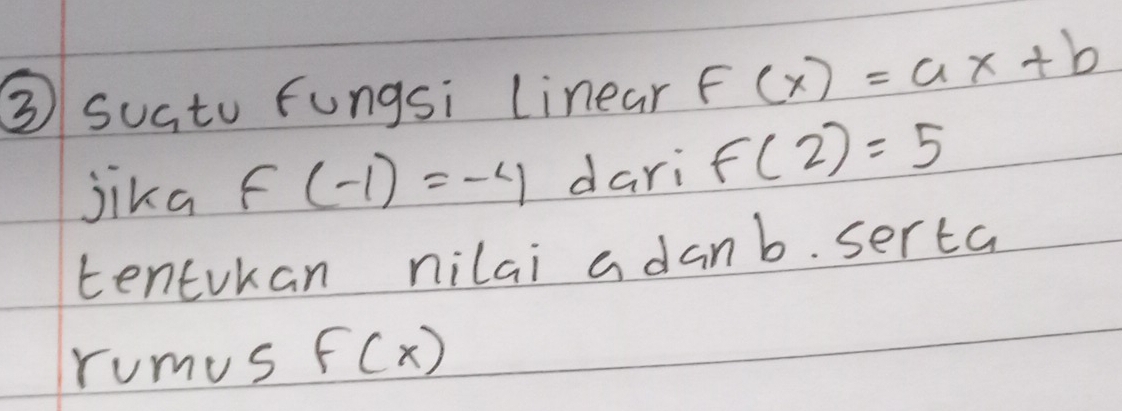 ③ Suatu fungsi linear F(x) = ax + b
jika F(-1) = -4 dari F(2) = 5
tentukan nilai a dan b. serta
rumus F(x)